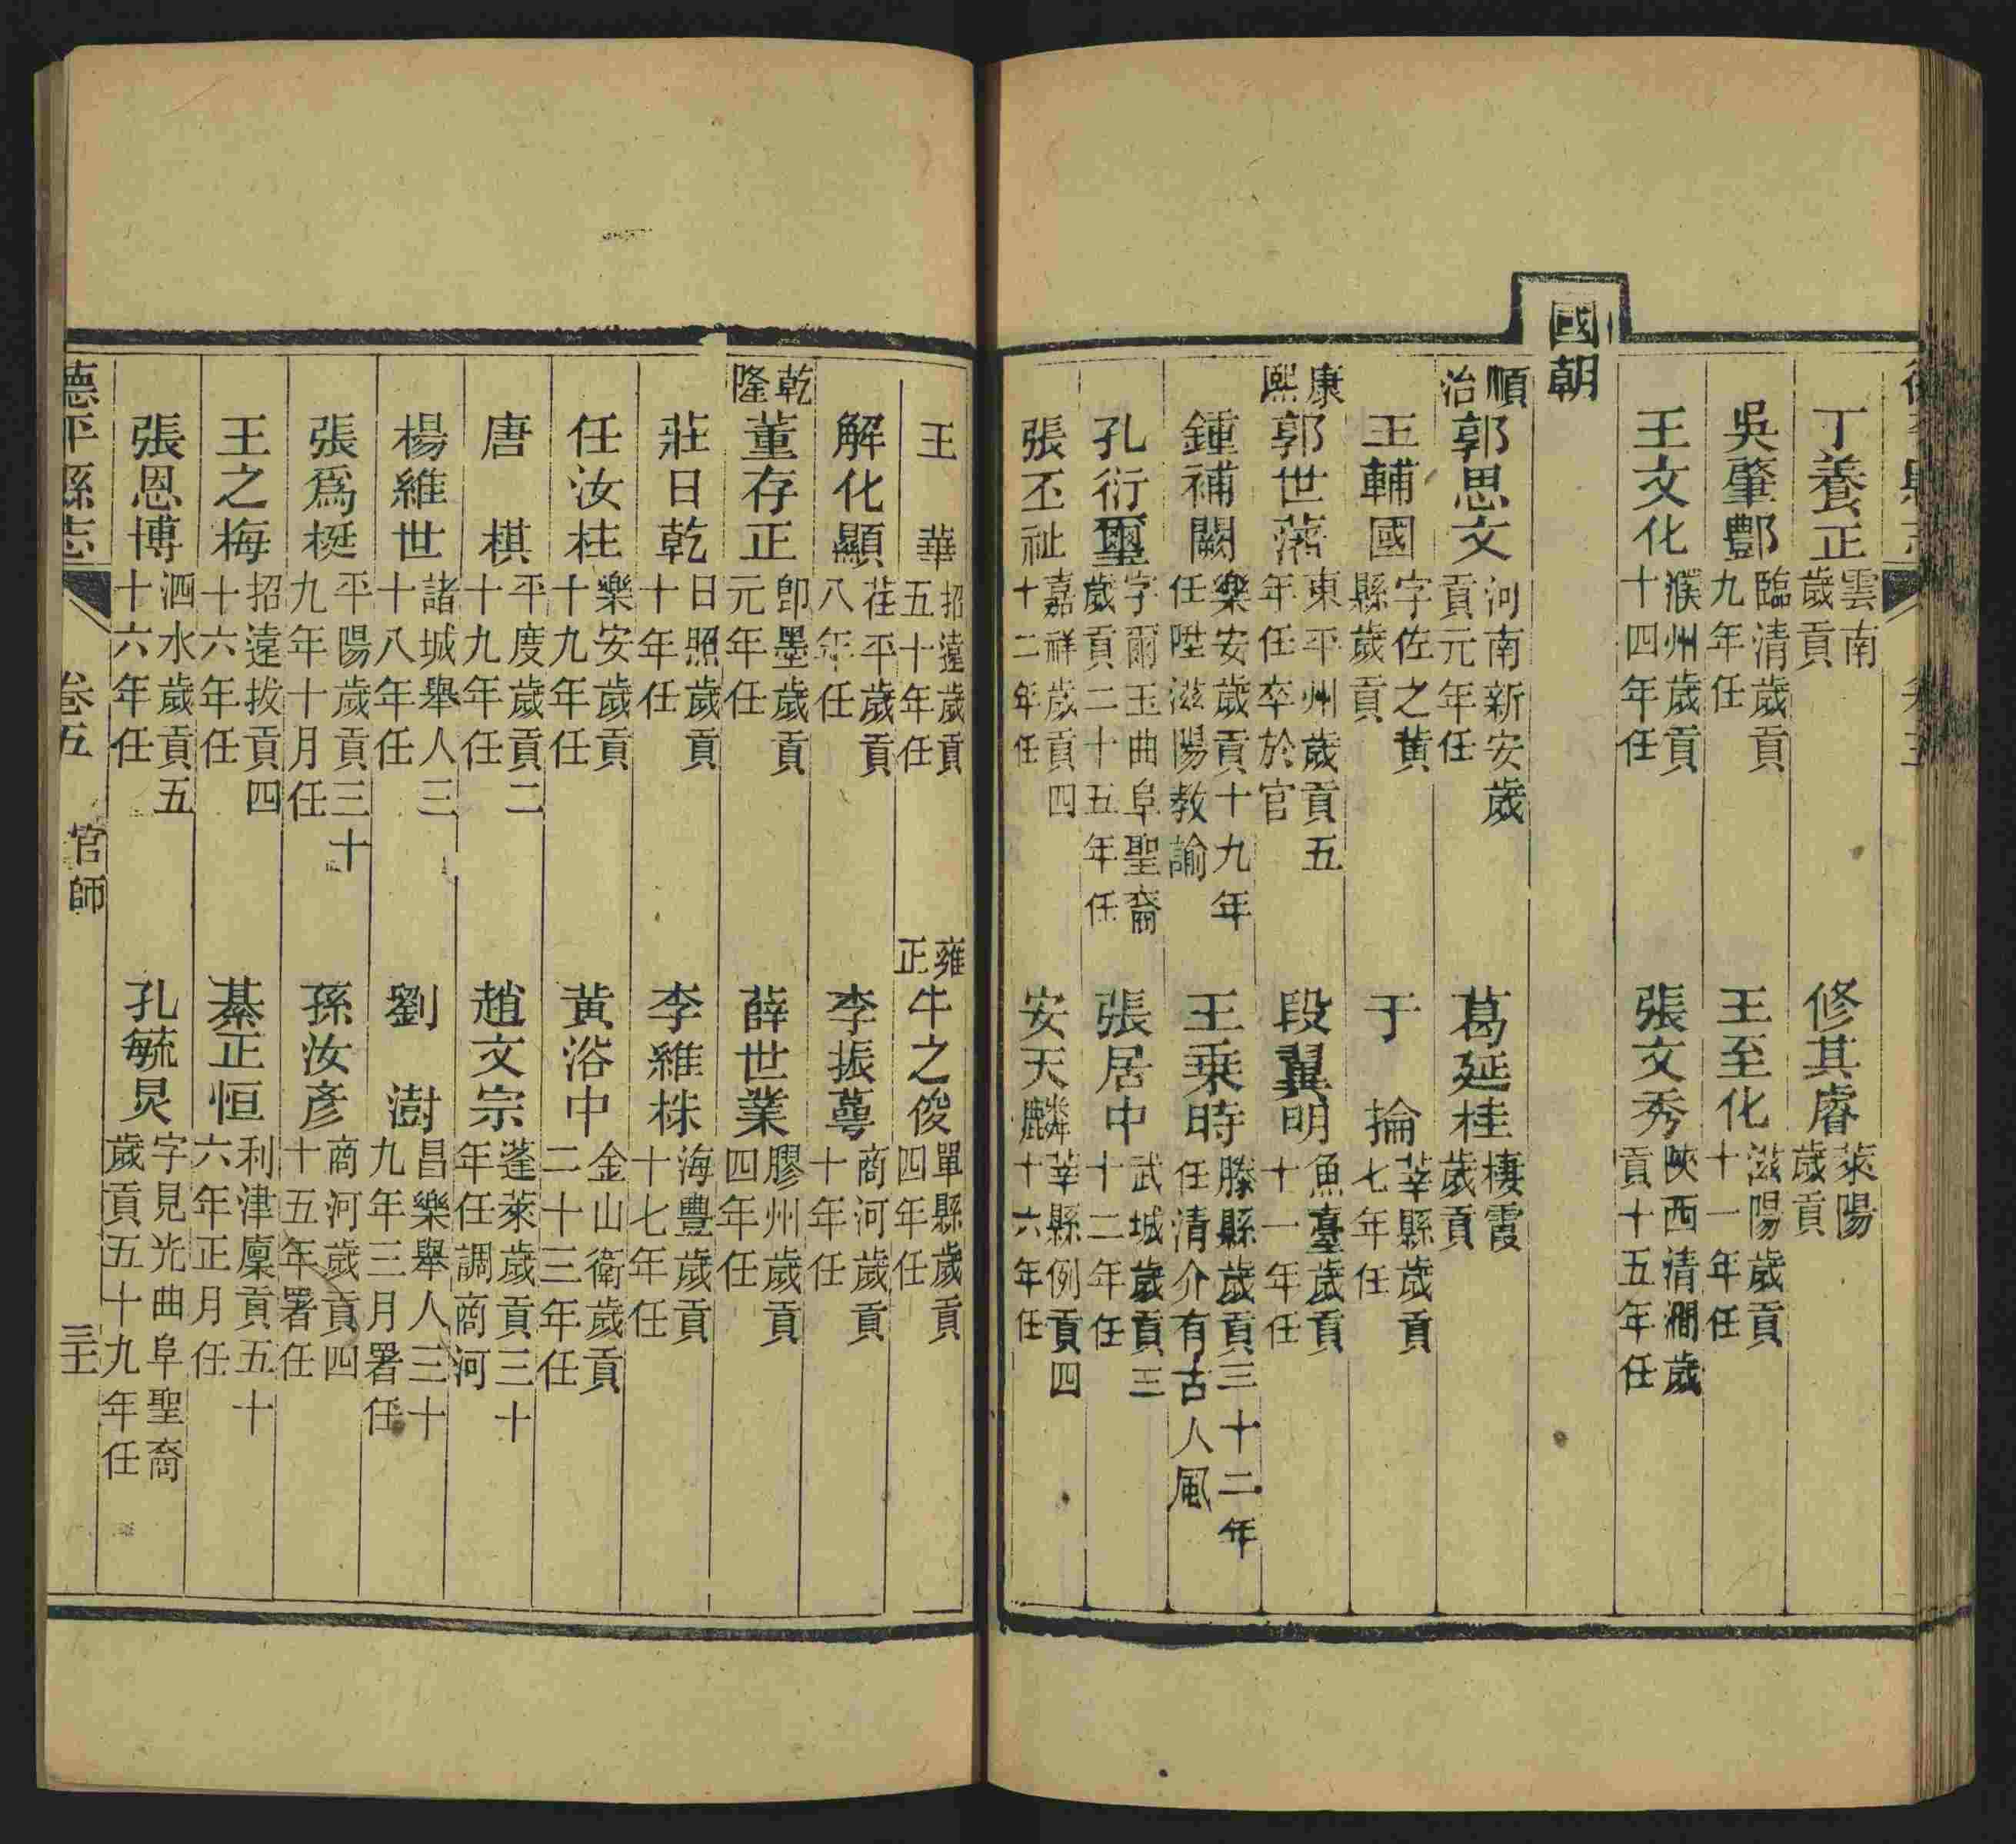 丁養正 雲南歲貢 修其睿 萊陽歲貢
吳肇酆 臨清歲貢九年任 王至化 滋陽歲貢十一年任
王文化 濮州歲貢十四年任 張文秀 陝西清澗歲貢十五年任
國朝
順治 郭思文 河南新安歲貢元年任 葛延桂 棲霞歲貢
王輔國 字佐之黃縣歲貢 于掄 莘縣歲貢七年任
康熙 郭世藩 東平州歲貢五年任卒於官 段翼明 魚臺歲貢十一年任
鍾補闕 樂安歲貢十九年任陞滋陽教諭 王乗時 滕縣歲貢三十二年任清介有古人風
孔衍璽 字爾玉曲阜聖裔歲貢二十五年任 張居中 武城歲貢三十二年任
張丕祉 嘉祥歲貢四十二年任 安天麟 莘縣例貢四十六年任
王華 招遠歲貢五十年任 雍正 牛之俊 單縣歲貢四年任
解化顯 茌平歲貢八年任 李振蕚 商河歲貢十年任
乾隆 董存正 卽墨歲貢元年任 薛世業 膠州歲貢四年任
莊日乾 日照歲貢十年任 李維株 海豐歲貢十七年任
任汝桂 樂安歲貢十九年任 黃浴中 金山衛歲貢二十三年任
唐棋 平度歲貢二十九年任 趙文宗 蓬萊歲貢三十年任調商河
楊維世 諸城舉人三十八年任 劉澍 昌樂舉人三十九年三月署任
張爲梃 平陽歲貢三十九年十月任 孫汝彥 商河歲貢四十五年署任
王之梅 招遠拔貢四十六年任 綦正恒 利津廩貢五十六年正月任
張恩博 泗水歲貢五十六年任 孔毓炅 字見光曲阜聖裔歲貢五十九年任
德平縣志 卷五 官師